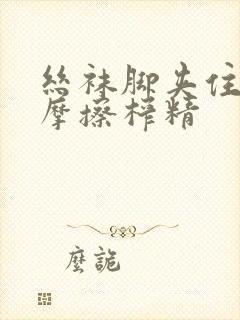 丝袜脚夹住
摩擦榨精
麽詭